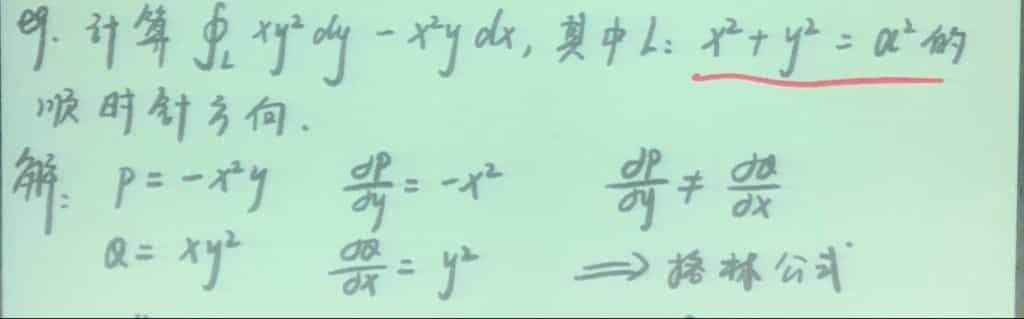 eg. 计算 ∮_L xy²dy - x²y dx, 其中 L: x² + y² = a² 的
顺时针方向.
解: P = -x²y ∂P/∂y = -x² ∂P/∂y ≠ ∂Q/∂x
Q = xy² ∂Q/∂x = y² ⟹ 格林公式